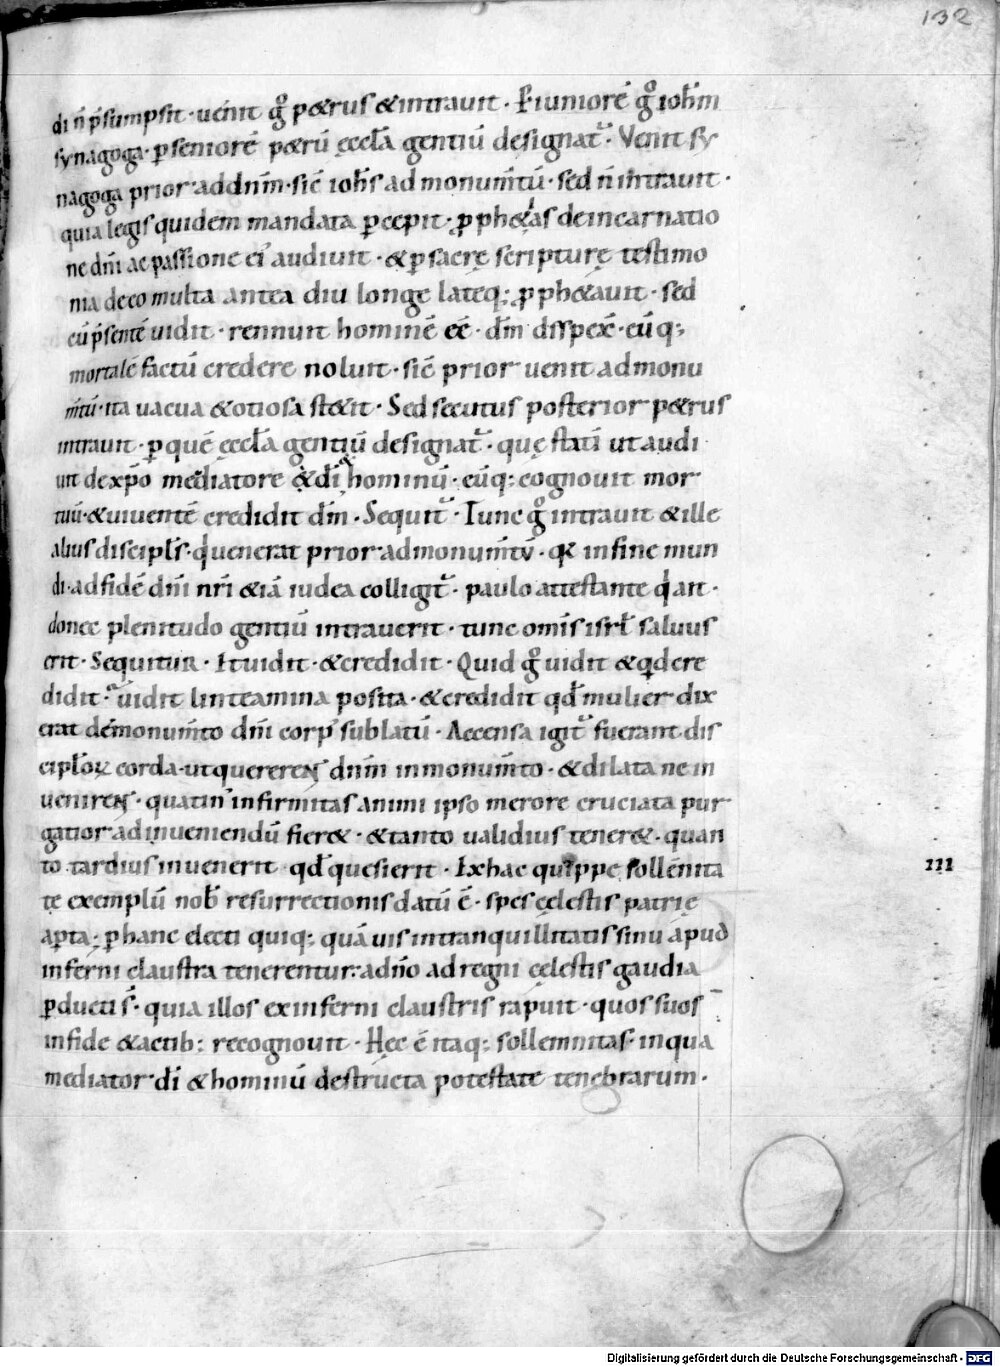 132
di n̄ p̄sumpsit · uenit gͦ petrus & intrauit · P iuniorē gͦ ioħm
synagoga · ꝑ seniorē petrū ęccłā gentiū designat᷑ · Venit sy
nagoga prior ad dn̄m · sic̄ ioħs ad monum̄tū · sed n̄ intrauit ·
quia legis quidem mandata ꝑcepit · ꝓph&ias de incarnatio
ne dn̄i ac passione ei᾽ audiuit · & ꝑ sacrę scripturę testimo
nia de eo multa antea diu longe lateq; ꝓph&auit · sed
cū p̄sentē uidit · rennuit hominē eē · dm̄ dispex̄ · eūq;
mortalē factū credere noluit · sic̄ prior uenit ad monu
m̄tū · ita uacua & otiosa st&it · Sed secutus posterior p&rus
intrauit · ꝑ quē ęccłā gentiū designat᷑ · quę statī ut audi
uit de xp̄o mediatore & dī hominū · eūq; cognouit mor
tuū · & uiuentē credidit dm̄ · Sequit᷑ · Tunc gͦ intrauit & ille
alius discipłs · q uenerat prior ad monum̄tū · q in fine mun
di · ad fidē dn̄i nr̄i &iā iudea colligit᷑ · paulo attestante q ait ·
donec plenitudo gentiū intrauerit · tunc omīs isrł saluus
erit · Sequitur · Et uidit · & credidit · Quid gͦ uidit & qd cre
didit · uidit linteamina posita · & credidit qđ mulier dix
erat de monum̄to dn̄i corp᾽ sublatū · Accensa igit᷑ fuerant dis
cipłoꝝ corda · ut quererent dn̄m in monum̄to · & dilata ne in
uenirent · quatin᾽ infirmitas animi ipso merore cruciata pur
gatior ad inueniendū fier& · & tanto ualidius tener& · quan
to tardius inuenerit qđ quesierit · Ex hac quippe sollēnita
te exemplū nob̄ resurrectionis datū ē · spes cęlestis patrię
apta; ꝑ hanc electi quiq; quāuis in tranquillitatis sinu apud
inferni claustra tenerentur · ad n̄o ad regni cęlestis gaudia
ꝑducti s̄ · quia illos ex inferni claustris rapuit · quos suos
in fide & actib; recognouit · Hęc ē itaq; sollemnitas · in qua
mediator dī & hominū destructa potestate tenebrarum ·
III
Digitalisierung gefördert durch die Deutsche Forschungsgemeinschaft - DFG